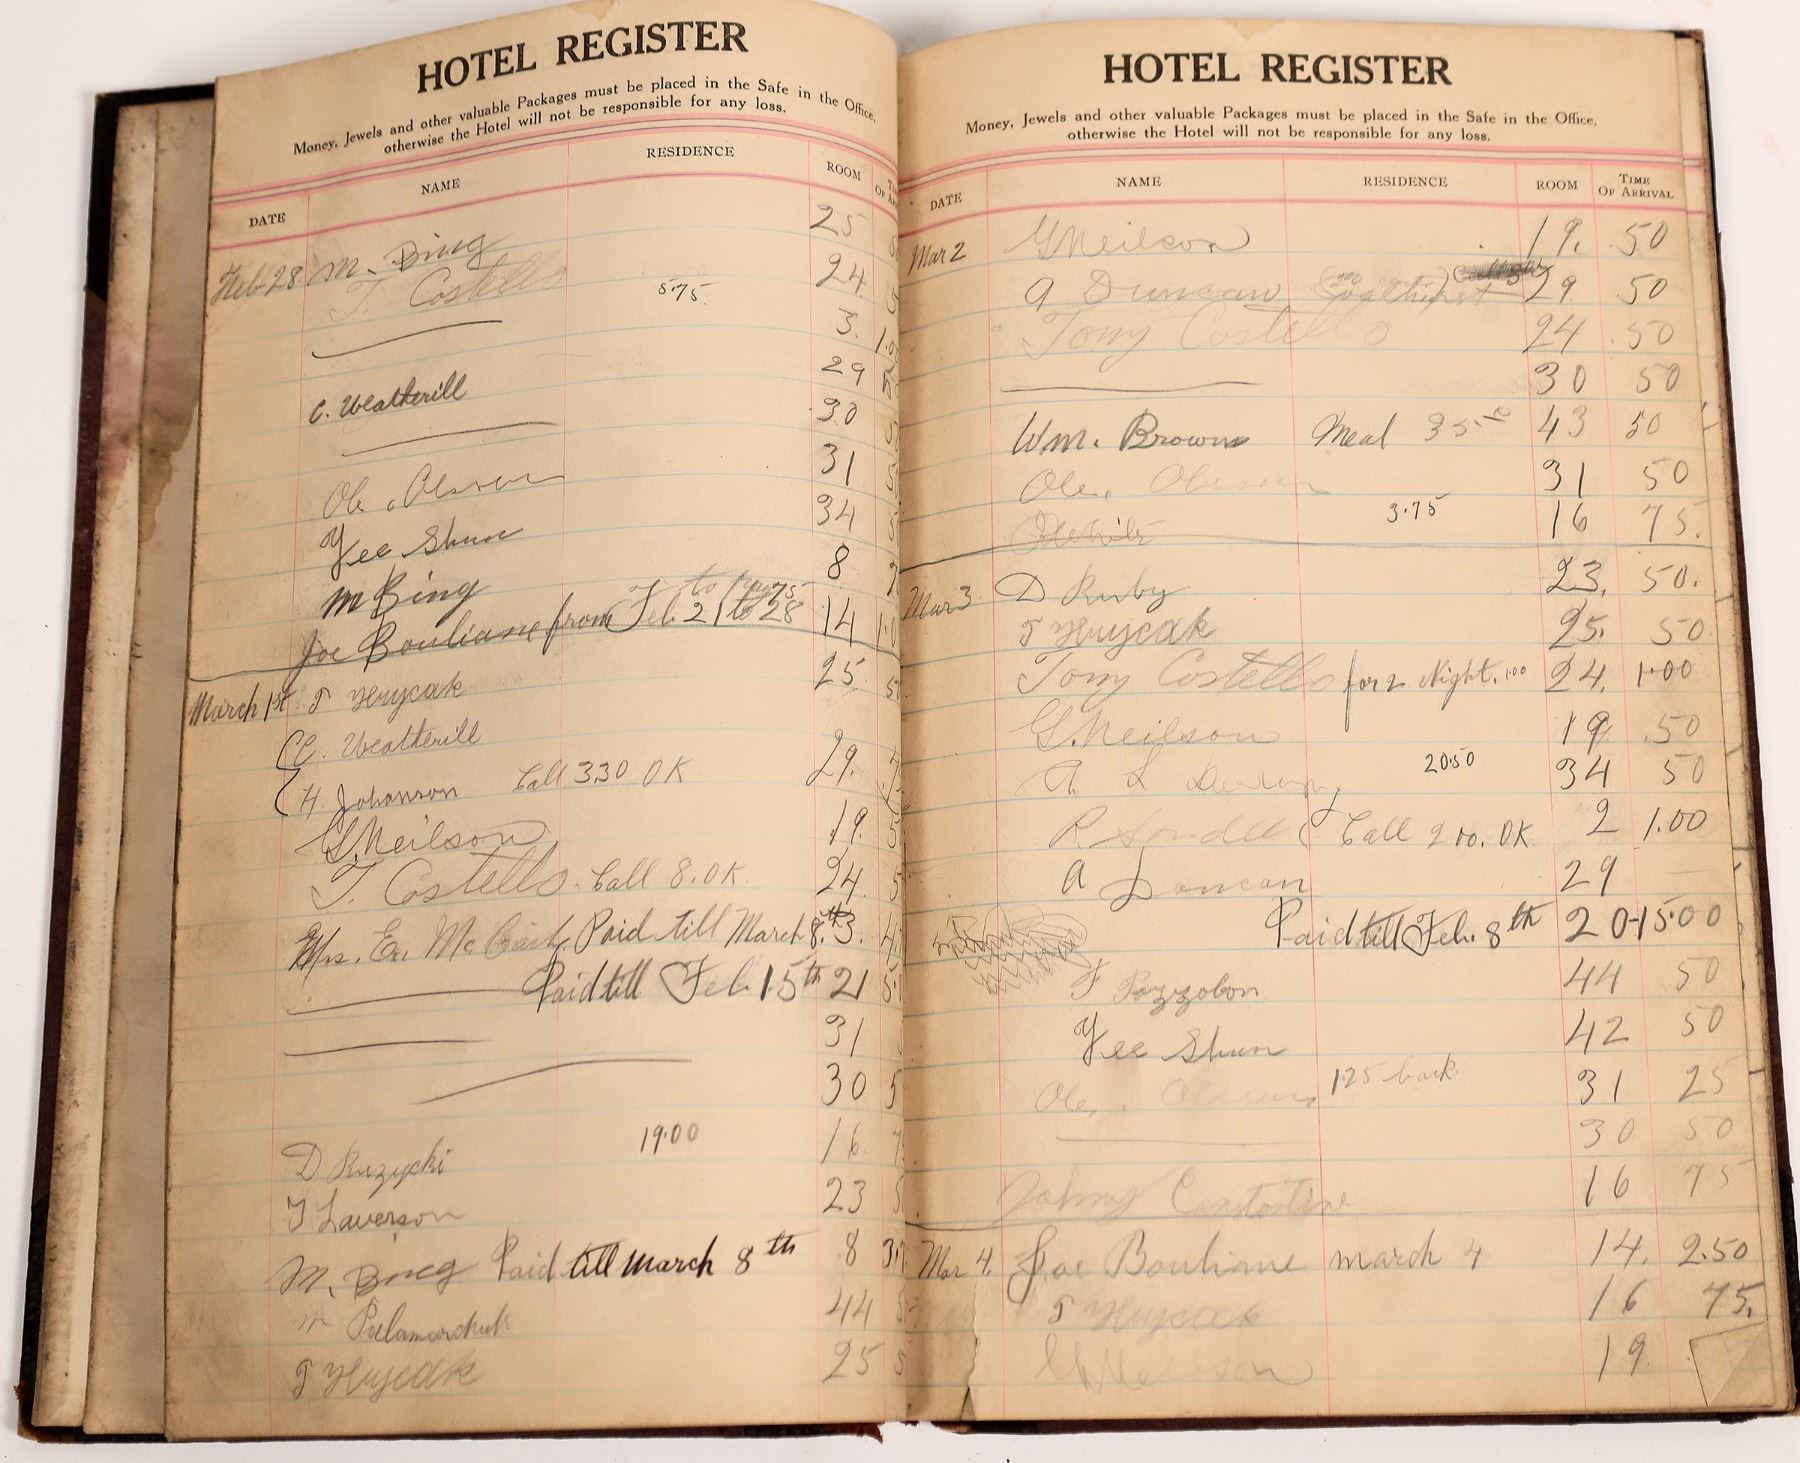 HOTEL REGISTER
Money, Jewels and other valuable Packages must be placed in the Safe in the Office,
otherwise the Hotel will not be responsible for any loss.
DATE NAME RESIDENCE ROOM
Feb 28 M. Bing 25
T. Costello 24
5.75
3.
C. Weatherill 29
30
Ole, Olsson 31
Yee Shun 34
M Bing 8
Joe Bouliane from Feb 21 to 28 14
March 1st T Hrycak 25
C. Weatherill
H Johanson Call 330 OK 29.
G. Neilson 19.
T. Costello. Call 8. OK 24
Mrs. Paid till March 8th. 3.
Paid till Feb. 15th 21
31
30
19.00
D Ruzycki 16
T Laverson 23
M. Bing Paid till March 8th 8
M Palamarchuk 44
T Hrycak 25
HOTEL REGISTER
Money, Jewels and other valuable Packages must be placed in the Safe in the Office,
otherwise the Hotel will not be responsible for any loss.
DATE NAME RESIDENCE ROOM TIME OF ARRIVAL
Mar 2 G Neilson 19. .50
A Duncan 29. 50
Tony Costello 24 .50
30 50
Wm. Brown Meal 35 43 50
Ole, Olsson 31 50
3.75 16 75.
Mar 3 D Ruby 23. 50.
T Hrycak 25. 50
Tony Costello for 2 Night. 1.00 24. 1.00
G. Neilson 19. .50
20.50
A L 34 50
R Call 2 OK. 2 1.00
A Duncan 29
Paid till Feb. 8th 20 15.00
F Pozzobon 44 50
Yee Shun 42 50
Ole, Olsson 1.25 back. 31 25
30 50
Johny Constantine 16 75
Mar 4. Joe Bouliane march 4 14. 2.50
T Hrycak 16 75.
G Neilson 19